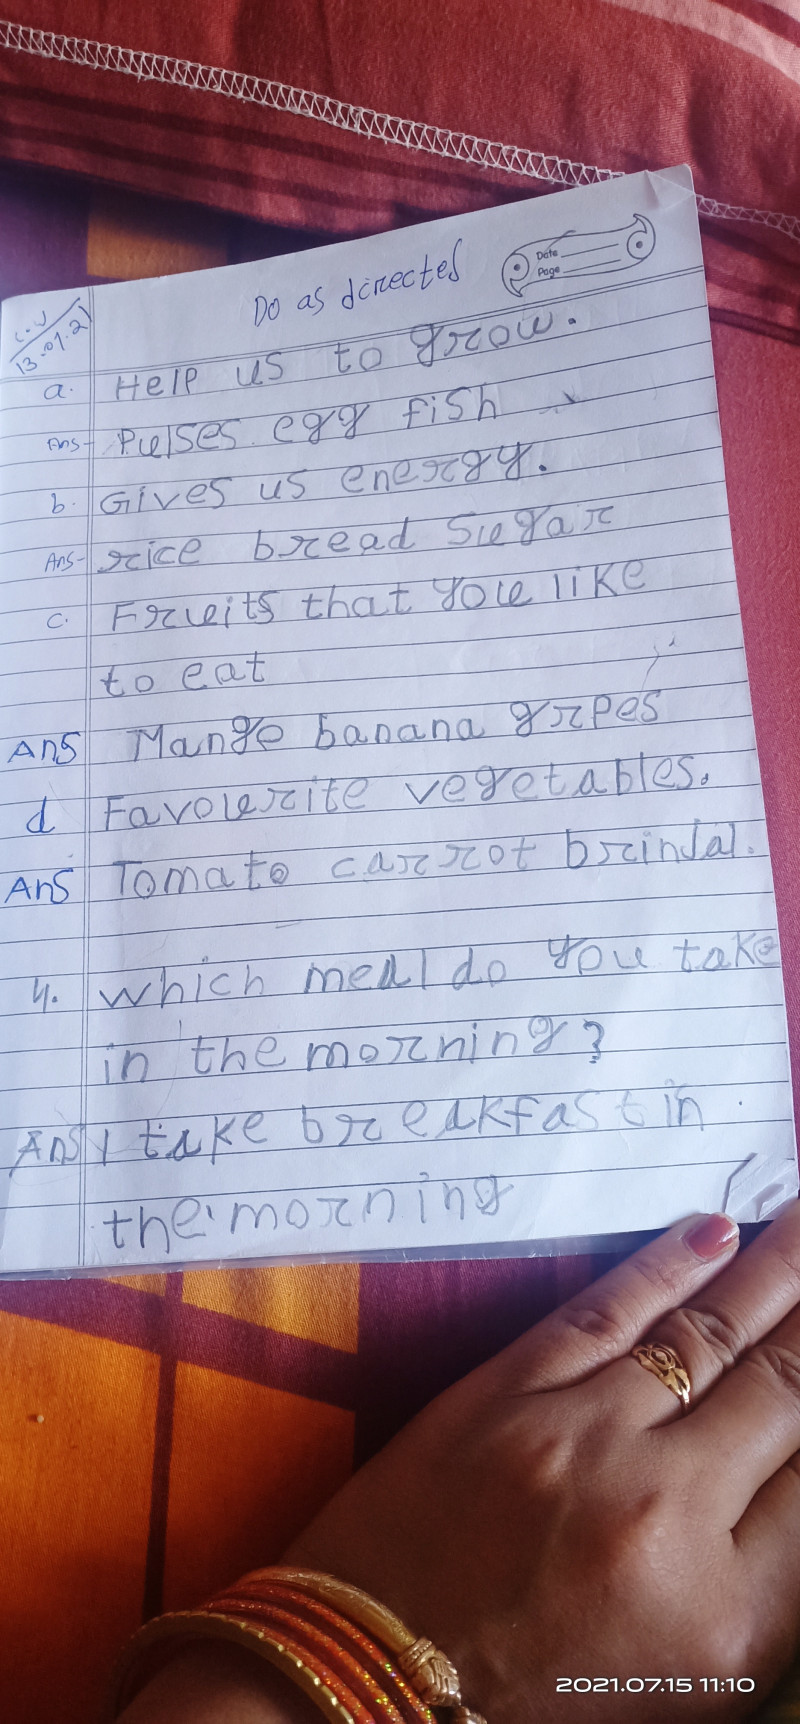 Do as directed
Date
Page
C.W
13.07.21
a. Help us to grow.
Ans- Pulses egg fish
b. Gives us energy.
Ans- rice bread Sugar
c. Fruits that you like
to eat
Ans Mango banana grpes
d Favourite vegetables.
Ans Tomato carrot brinjal.
4. which meal do you take
in the morning?
Ans I take breakfast in
the morning
2021.07.15 11:10